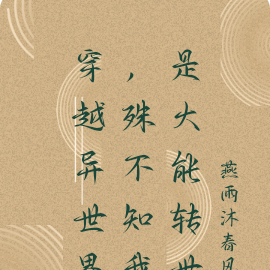 穿越异世界
，殊不知我
是大能转世
燕雨沐春风